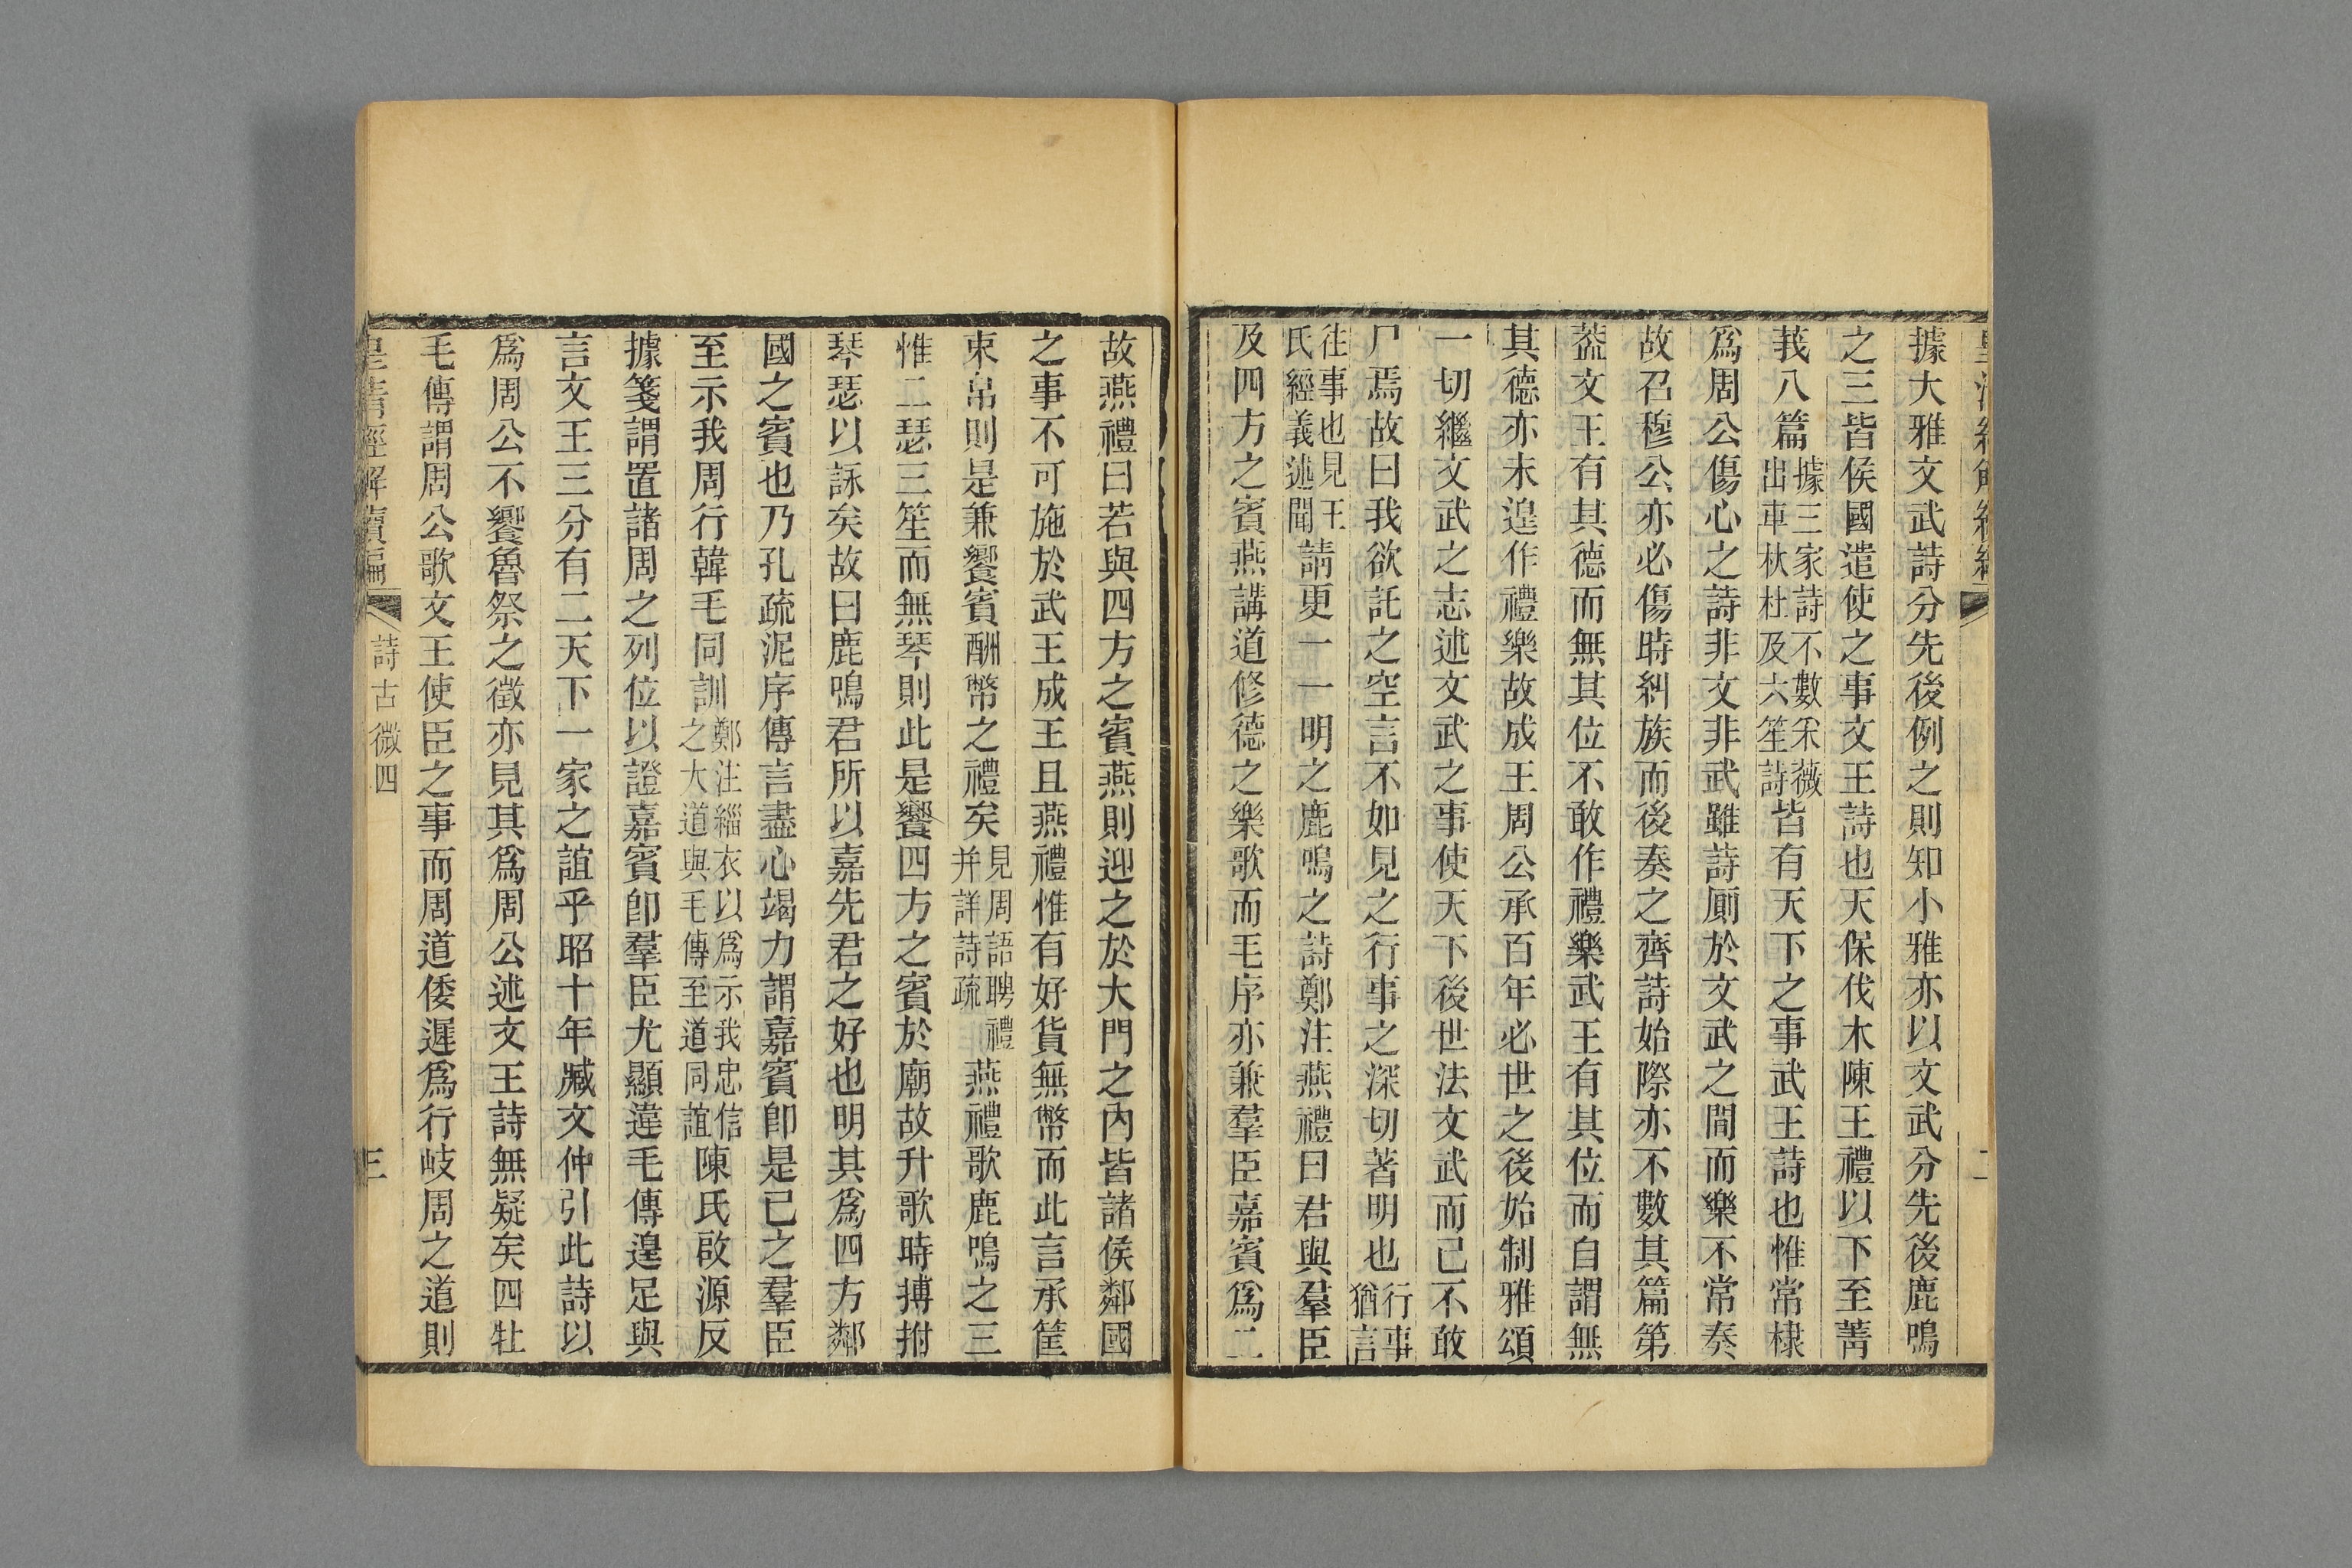 據大雅文武詩分先後例之則知小雅亦以文武分先後鹿鳴
之三皆侯國遣使之事文王詩也天保伐木陳王禮以下至菁
莪八篇據三家詩不數采薇出車杕杜及六笙詩皆有天下之事武王詩也惟常棣
爲周公傷心之詩非文非武雖詩厠於文武之間而樂不常奏
故召穆公亦必傷時糾族而後奏之齊詩始際亦不數其篇第
葢文王有其德而無其位不敢作禮樂武王有其位而自謂無
其德亦未遑作禮樂故成王周公承百年必世之後始制雅頌
一切繼文武之志述文武之事使天下後世法文武而已不敢
尸焉故曰我欲託之空言不如見之行事之深切著明也行事猶言
往事也見王氏經義述聞請更一一明之鹿鳴之詩鄭注燕禮曰君與羣臣
及四方之賓燕講道修德之樂歌而毛序亦兼羣臣嘉賓爲二
故燕禮曰若與四方之賓燕則迎之於大門之內皆諸侯鄰國
之事不可施於武王成王且燕禮惟有好貨無幣而此言承筐
束帛則是兼饗賓酬幣之禮矣見周語聘禮并詩詳疏燕禮歌鹿鳴之三
惟二瑟三笙而無琴則此是饗四方之賓於廟故升歌時搏拊
琴瑟以詠矣故曰鹿鳴君所以嘉先君之好也明其爲四方鄰
國之賓也乃孔疏泥序傳言盡心竭力謂嘉賓卽是已之羣臣
至示我周行韓毛同訓鄭注緇衣以爲示我忠信之大道與毛傳至道同誼陳氏啟源反
據箋謂置諸周之列位以證嘉賓卽羣臣尤顯違毛傳遑足與
言文王三分有二天下一家之誼乎昭十年臧文仲引此詩以
爲周公不饗魯祭之徵亦見其爲周公述文王詩無疑矣四牡
毛傳謂周公歌文王使臣之事而周道倭遲爲行岐周之道則
皇清經解續編
詩古微四
三